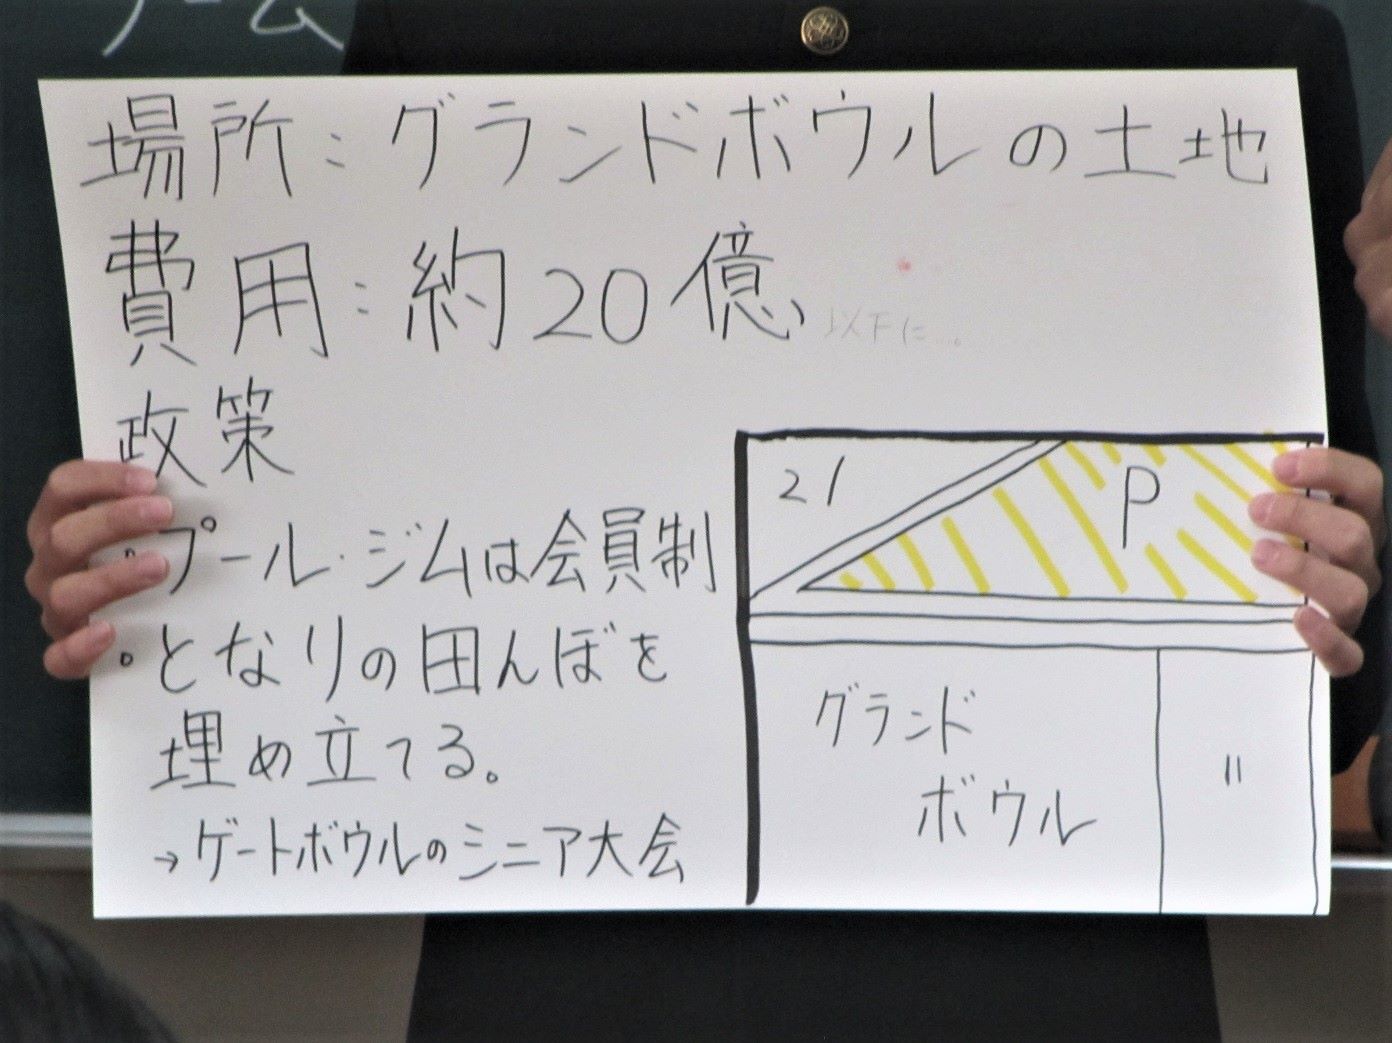 場所：グランドボウルの土地
費用：約20億、以下に…。
政策
・プール・ジムは会員制
・となりの田んぼを
埋め立てる。
→ゲートボウルのシニア大会
21
P
グランド
ボウル
〃